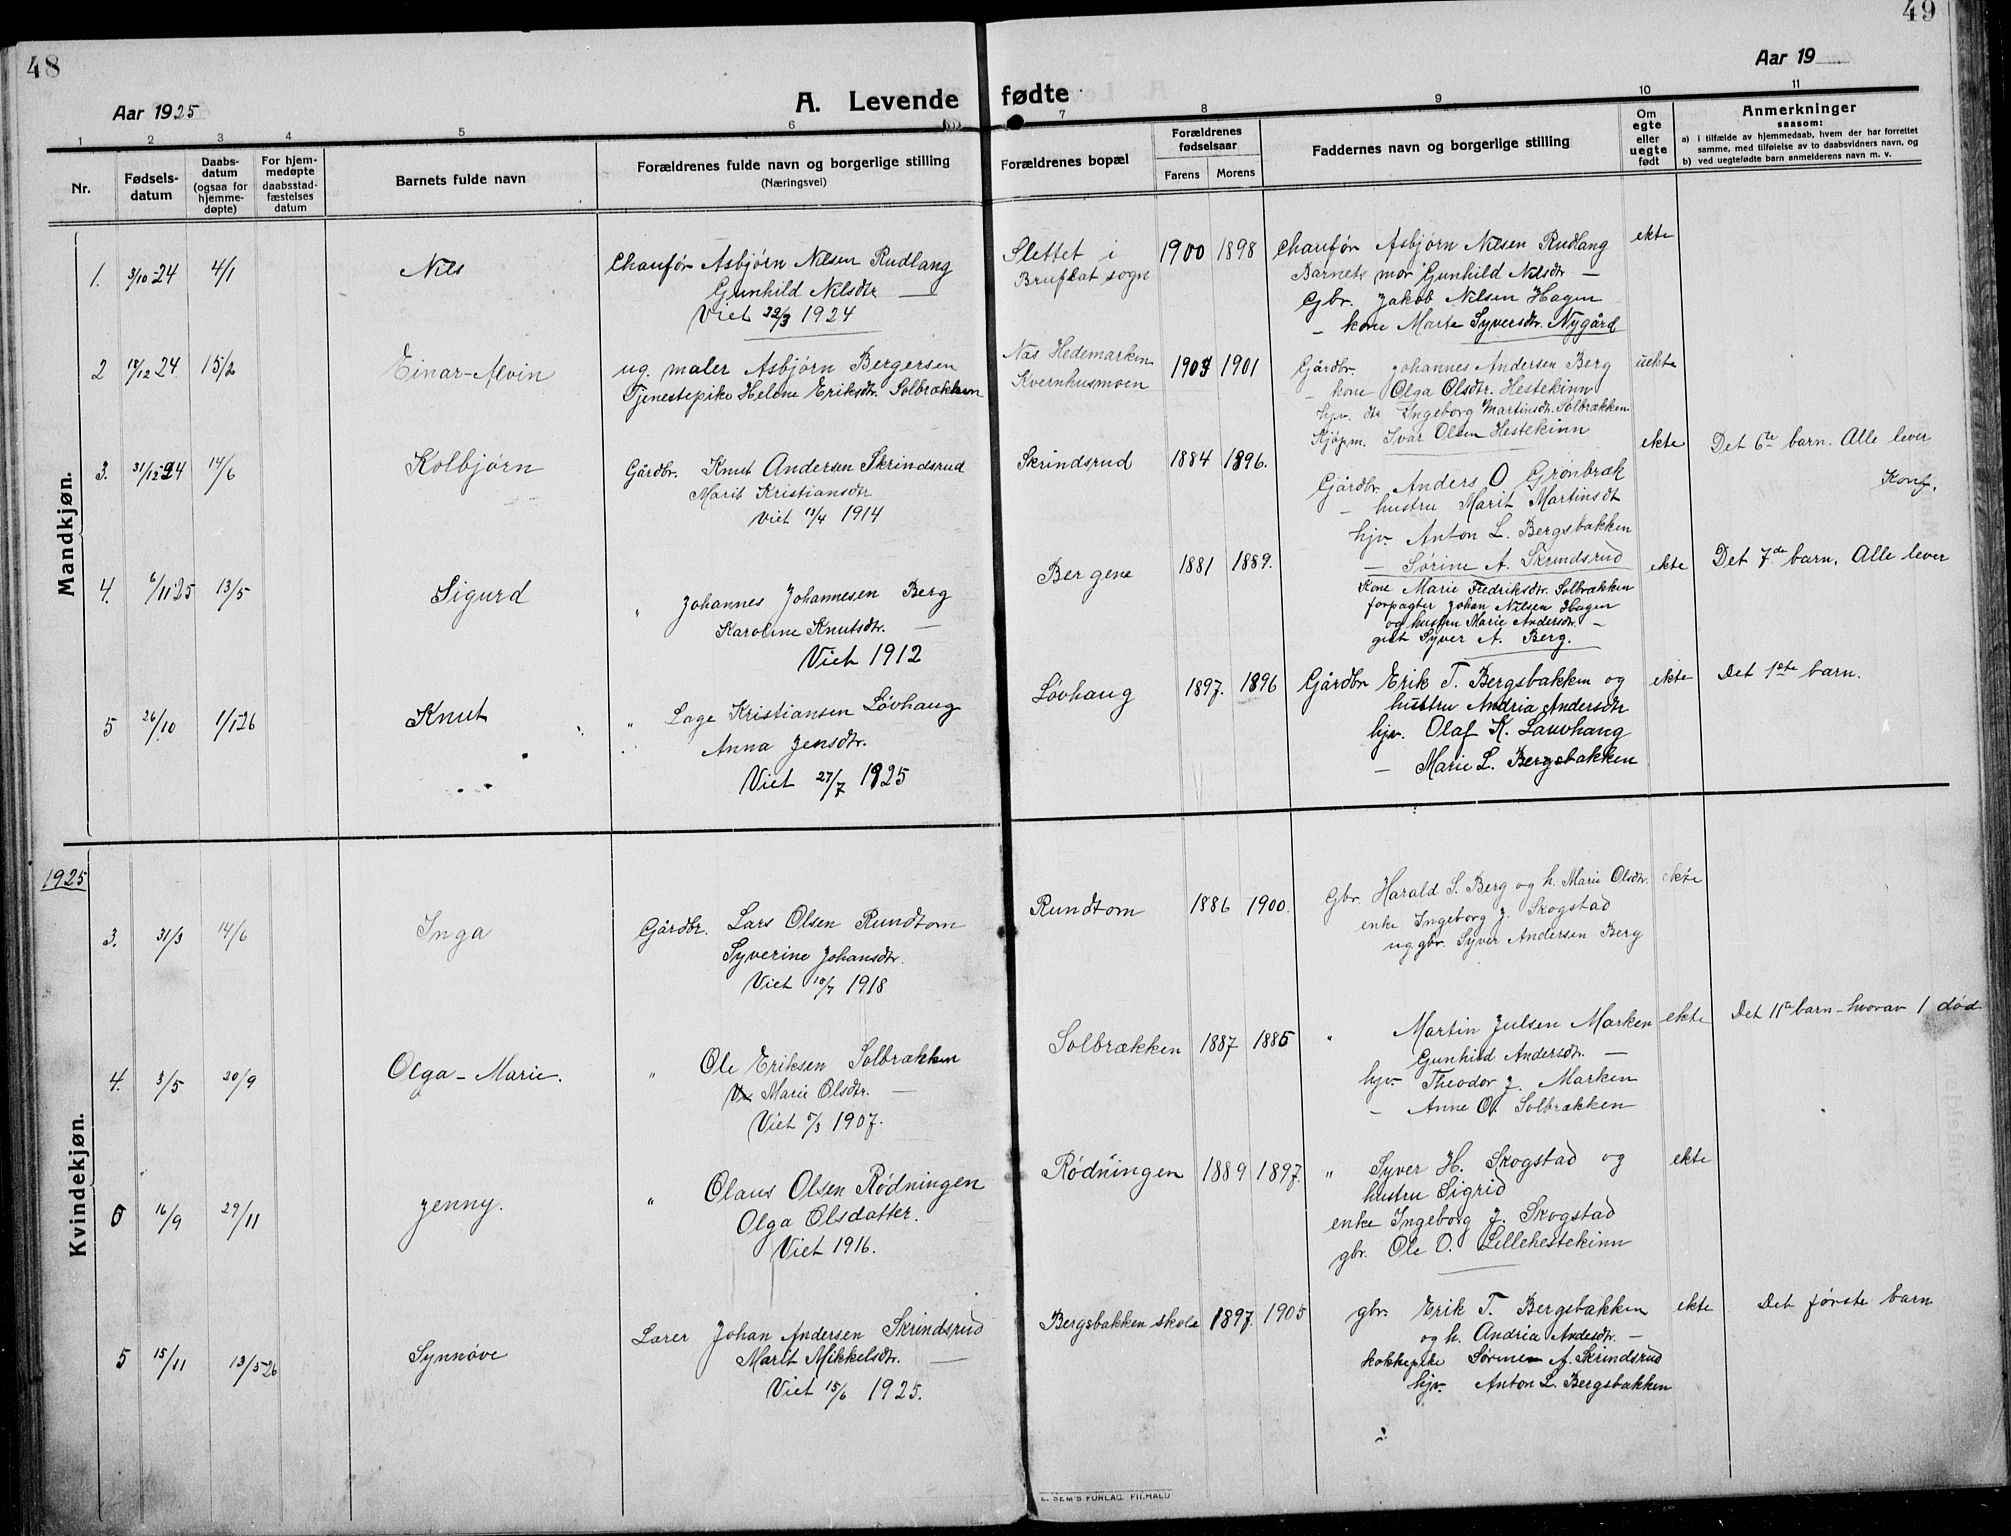 48
49
Aar 1925
A. Levende fødte
Aar 19
1 2 3 4 5 6 7 8 9 10 11
Nr.
Fødsels-
datum
Daabs-
datum
(ogsaa for
hjemme-
døpte)
For hjem-
medøpte
daabsstad-
fæstelses
datum
Barnets fulde navn
Forældrenes fulde navn og borgerlige stilling
(Næringsvei)
Forældrenes bopæl
Forældrenes
fødselsaar
Farens Morens
Faddernes navn og borgerlige stilling
Om
egte
eller
uegte
født
Anmerkninger
saasom:
a) i tilfælde av hjemmedaab, hvem der har forrettet
samme, med tilføielse av to daabsvidners navn, og
b) ved uegtefødte barn anmelderens navn m. v.
Mandkjøn.
1. 3/10-24 4/1 Nils
Chauför Asbjörn Nilsen Rudlang
Gunhild Nilsdtr —
Viet 22/3 1924
Slettet i
Bruflat sogn
1900 1898
Chauför Asbjörn Nilsen Rudlang
Barnets mor Gunhild Nilsdtr —
Gbr. Jakob Nilsen Hagen
— kone Marte Syversdtr. Nygård
ekte
2 /12 24 15/2 Einar-Alvin
ug. maler Asbjørn Bergersen
Tjenestepike Helene Eriksdtr. Solbrækken
Nas Hedemarken
Kvernhusmoen
1903 1901
Gårdbr. Johannes Andersen Berg
— kone Olga Olsdtr. Hestekinn
hjv. dtr Ingeborg Martinsdtr. Solbrækken
Kjøpm. Ivar Olsen Hestekinn
uekte
3. 31/12-24 14/6 Kolbjörn
Gårdbr. Knut Andersen Skrindsrud
Marit Kristiansdtr
Viet 13/4 1914
Skrindsrud
1884 1896.
Gårdbr Anders O Grønbræk
— hustru Marit Martinsdt
hjv. Anton L. Bergsbakken
— Sørine A. Skrindsrud
ekte
Det 6te barn. Alle lever
Konf.
4. 6/11 25 13/5 Sigurd
" Johannes Johannesen Berg
Karoline Knutsdtr. —
Viet 1912
Bergene
1881 1889.
Kone Marie Fredriksdtr. Solbrækken
forpagter Johan Nilsen Hagen
og hustru Marie Andersdtr. —
gut Syver A. Berg.
ekte
Det 7de barn. Alle lever
5 26/10 1/1 26 Knut
" Lage Kristiansen Løvhaug
Anna Jensdtr.
Viet 27/7 1925
Løvhaug
1897. 1896
Gårdbr Erik T. Bergsbakken og
hustru Andria Andersdtr
hjv. Olaf K. Lauvhaug
— Marie L. Bergsbakken
ekte
Det 1ste barn.
1925
Kvindekjøn.
3. 31/3 14/6 Inga
Gårdbr. Lars Olsen Rundtom
Syverine Johansdtr.
Viet 10/7 1918
Rundtom
1886 1900.
Gbr. Harald S. Berg og h. Marie Olsdtr.
enke Ingeborg J. Skogstad
ug. gbr. Syver Andersen Berg
ekte
4. 3/5 20/9 Olga-Marie.
" Ole Eriksen Solbrækken
Marie Olsdtr. —
Viet /3 1907.
Solbrækken
1887 1885
" Martin Julsen Marken
Gunhild Andersdtr. —
hjv. Theodor J. Marken
— Anne O. Solbrækken
ekte
Det 11te barn — hvorav 1 død
16/9 29/11 Jenny.
" Olaus Olsen Rødningen
Olga Olsdatter.
Viet 1916.
Rødningen
1889 1897.
" Syver H. Skogstad og
hustru Sigrid
enke Ingeborg J. Skogstad
gbr. Ole O. Lillehestekinn
ekte
5 15/11 13/5-26 Synnøve
Lærer Johan Andersen Skrindsrud
Marit Mikkelsdtr. —
Viet 15/6 1925.
Bergsbakken skole
1897. 1905
gbr. Erik T. Bergsbakken
og h. Andria Andesdtr. —
kokkepike Sørine A. Skrindsrud
hjv. Anton L. Bergsbakken
ekte
Det første barn
E. SEM'S FORLAG, FR.HALD